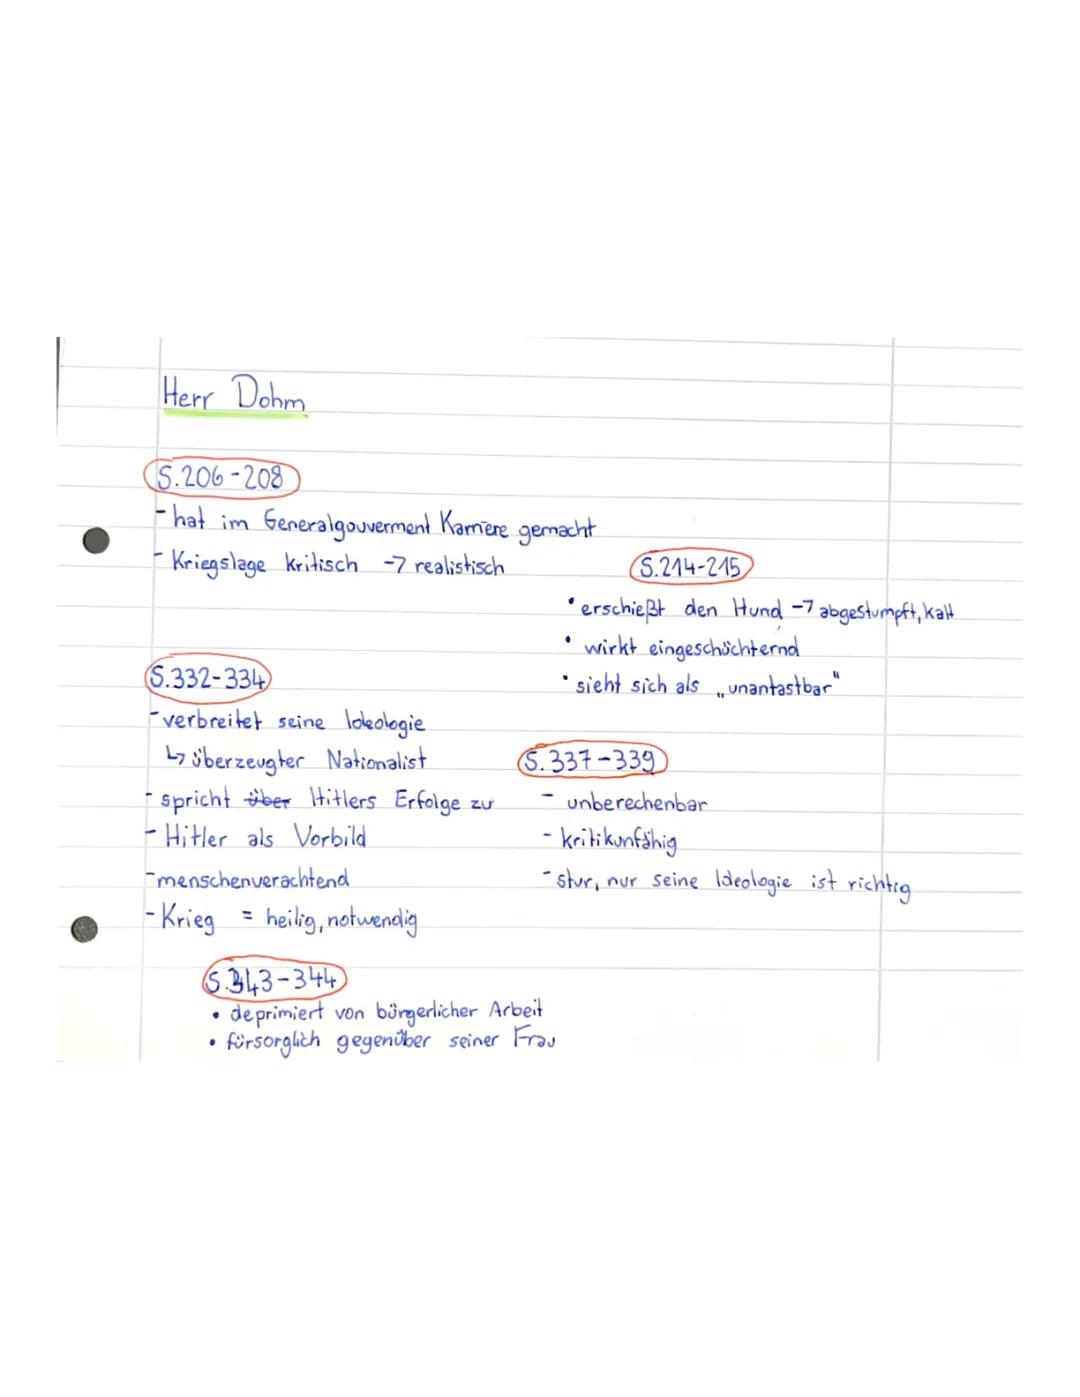 Herr Dohm
S.206-208
- hat im Generalgouverment Karriere gemacht
- Kriegslage kritisch -> realistisch
S.214-215
• erschießt den Hund -> abgestumpft, kalt
• wirkt eingeschüchternd
• sieht sich als „unantastbar"
S.332-334
- verbreitet seine Ideologie
↳ überzeugter Nationalist
- spricht über Hitlers Erfolge zu
- Hitler als Vorbild
- menschenverachtend
- Krieg = heilig, notwendig
S.337-339
- unberechenbar
- kritikunfähig
- stur, nur seine Ideologie ist richtig
S.343-344
• deprimiert von bürgerlicher Arbeit
• fürsorglich gegenüber seiner Frau